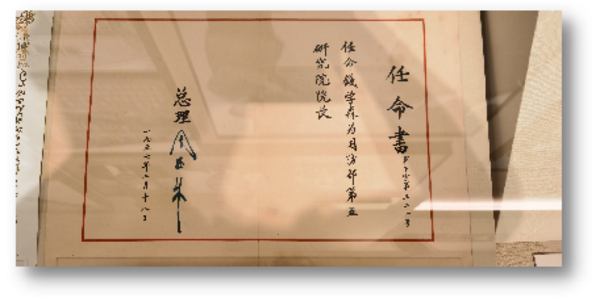 任命書
任命钱学森为国防部第五
研究院院长
总理 周恩来
一九五七年二月十八日